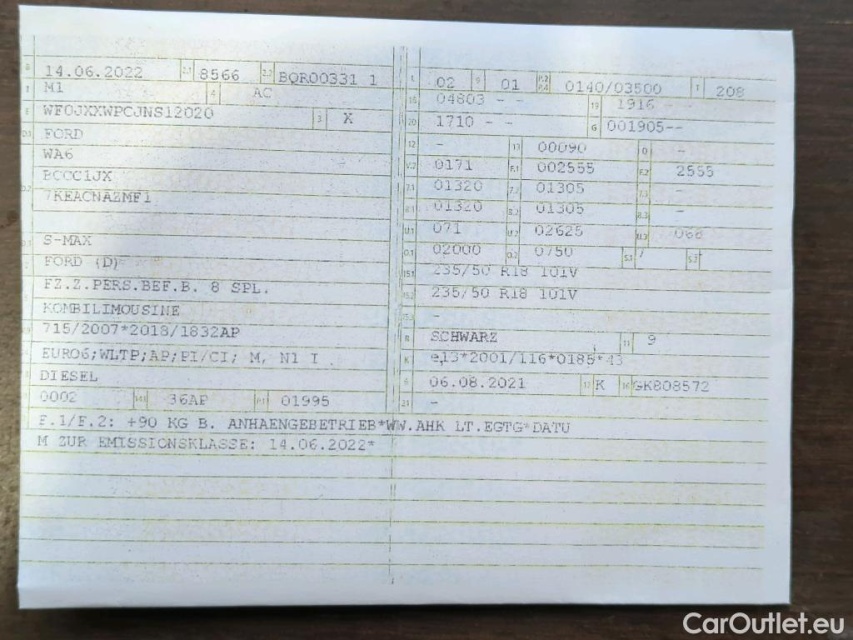 14.06.2022 8566 BQR00331 1
M1 AC
WF0JXXWPCJNS12020 X
FORD
WA6
BCCC1JX
7KEACNAZMF1
S-MAX
FORD (D)
FZ.Z.PERS.BEF.B. 8 SPL.
KOMBILIMOUSINE
715/2007*2018/1832AP
EURO6;WLTP;AP;PI/CI; M, N1 I
DIESEL
0002 36AP 01995
02 01 0140/03500 208
04803 - - 1916 - -
1710 - - 001905--
- 00090 -
0171 002555 2555
01320 01305 -
01320 01305 -
071 02625 068
02000 0750 /
235/50 R18 101V
235/50 R18 101V
-
SCHWARZ 9
e13*2001/116*0185*43
06.08.2021 K GK808572
-
F.1/F.2: +90 KG B. ANHAENGEBETRIEB*WW.AHK LT.EGTG*DATU
M ZUR EMISSIONSKLASSE: 14.06.2022*
CarOutlet.eu